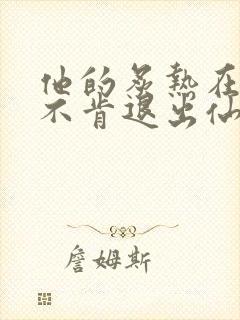 他的炙热在
不肯退出仙
詹姆斯